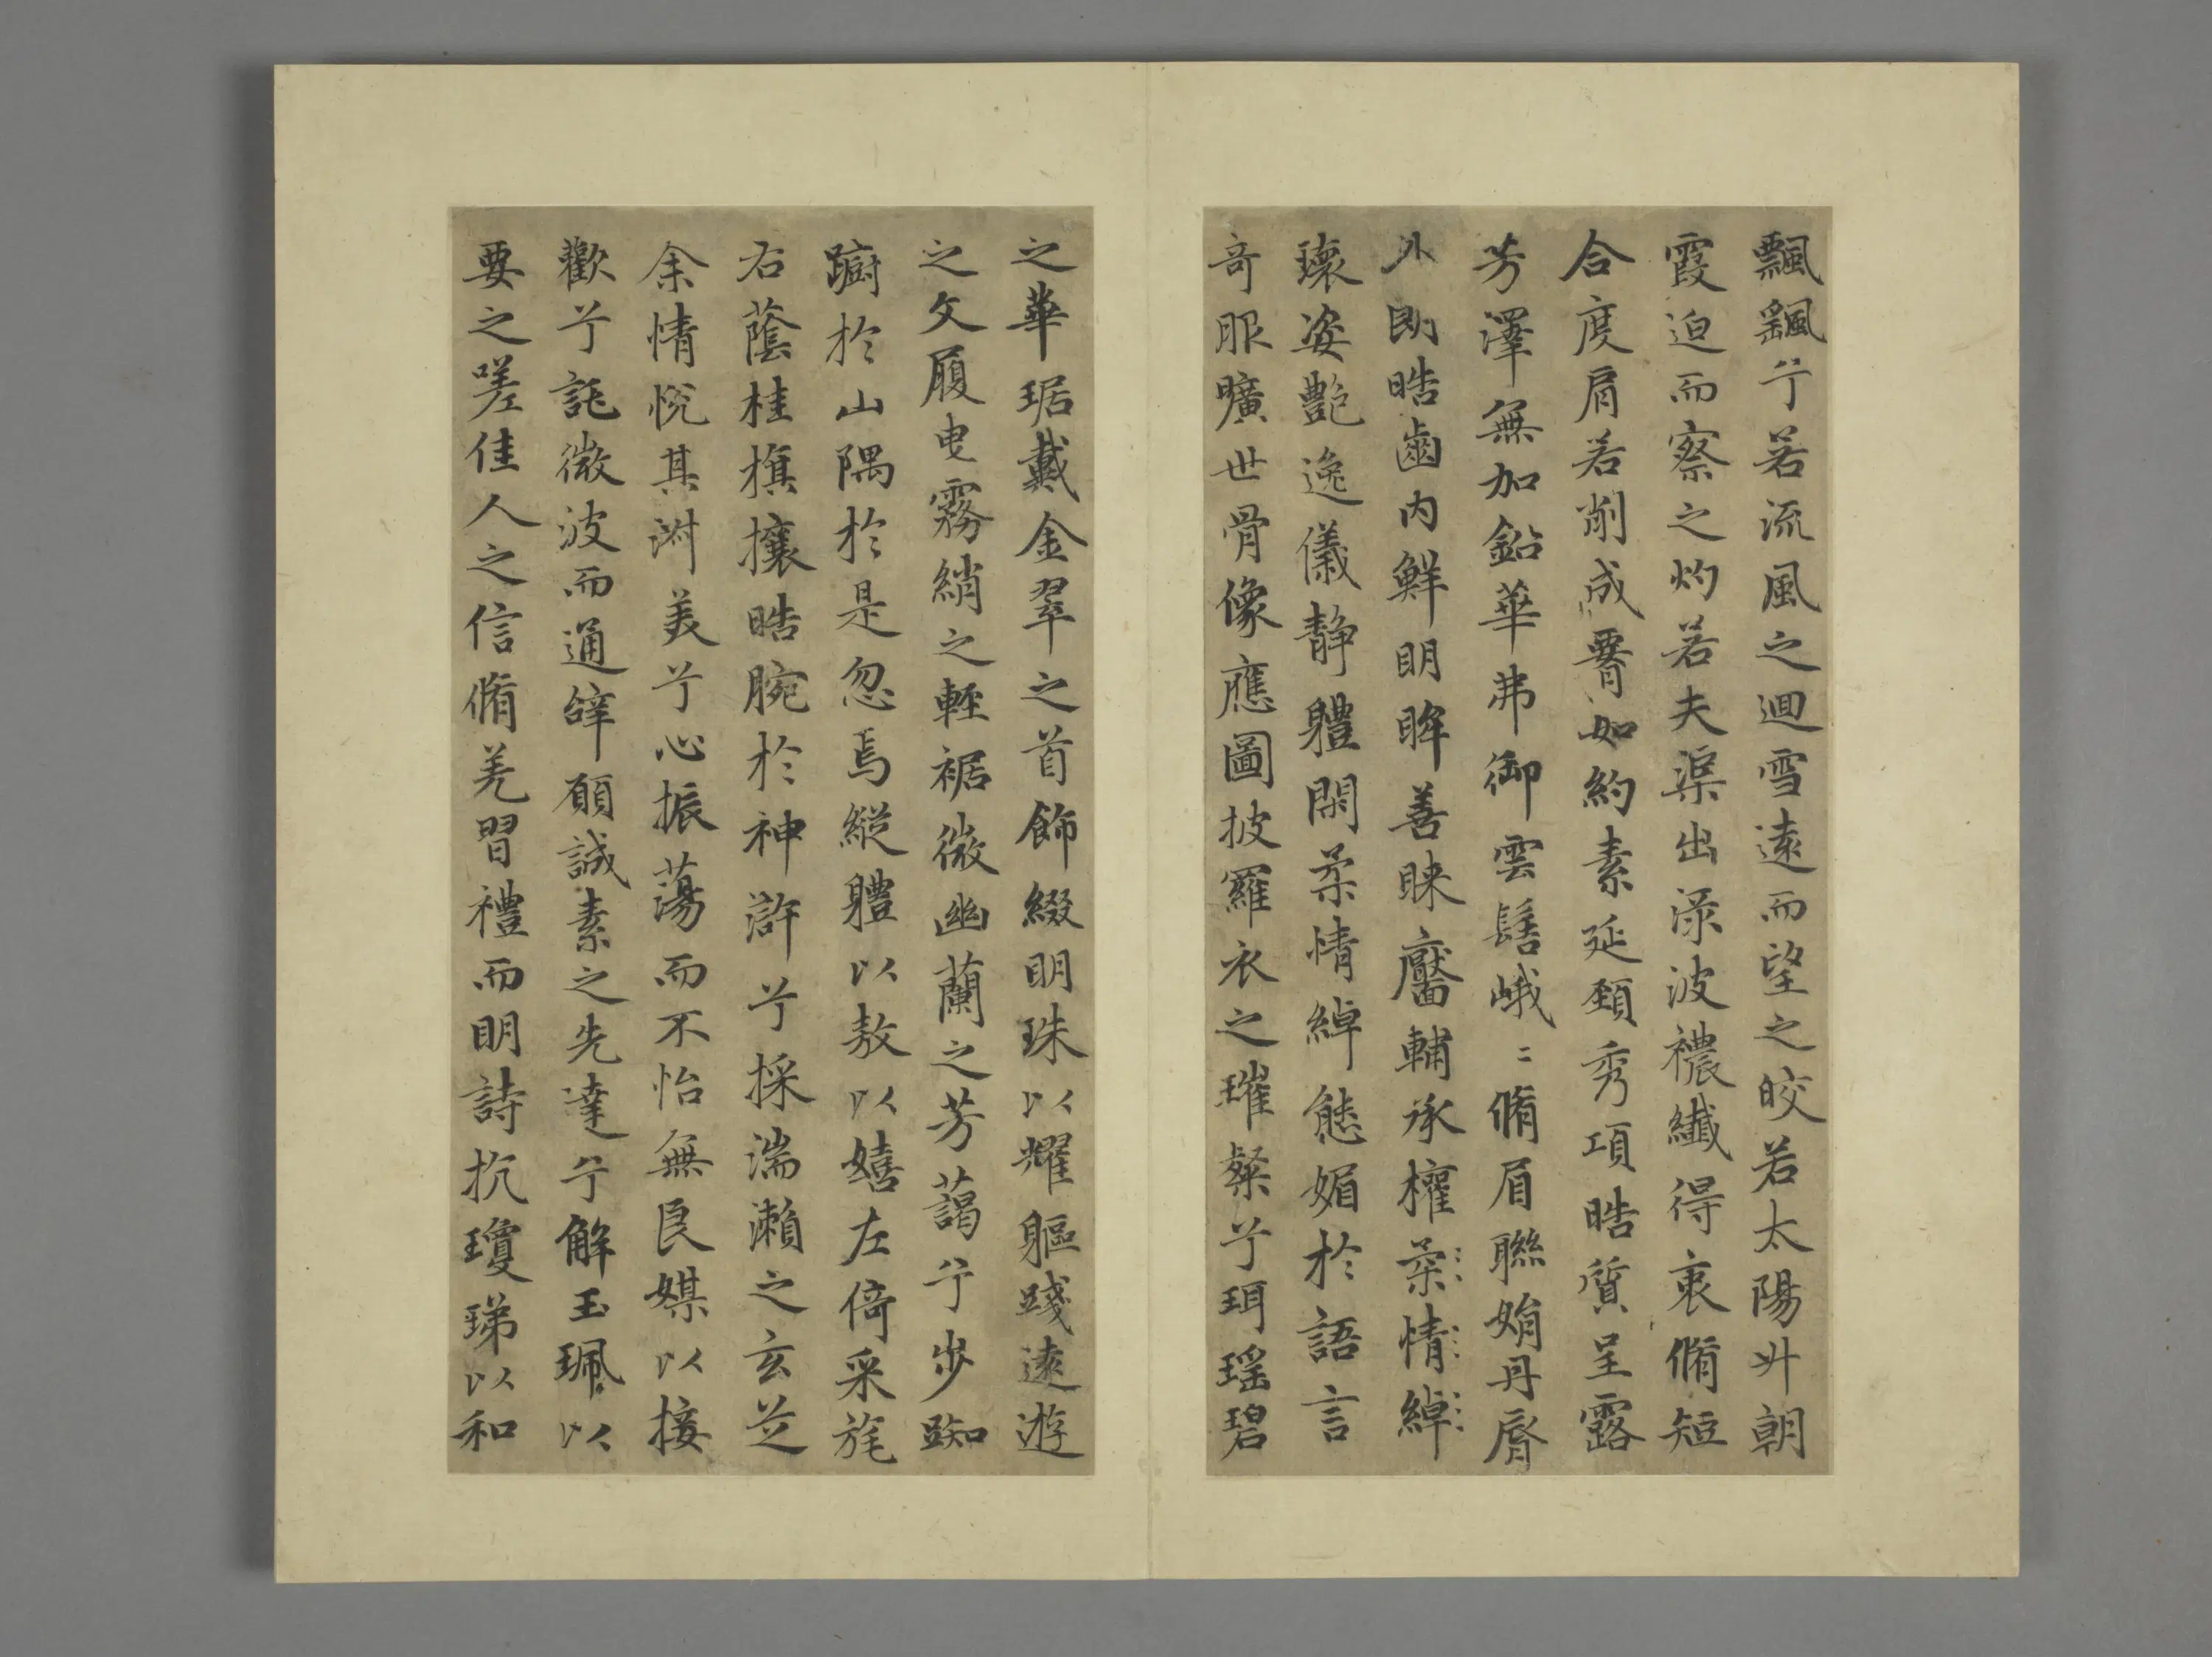 飄飖兮若流風之迴雪遠而望之皎若太陽升朝
霞迫而察之灼若夫渠出淥波襛纖得衷脩短
合度肩若削成䙅如約素延頸秀項皓質呈露
芳澤無加鉛華弗御雲髻峨〻脩眉聯娟丹脣
外朗皓齒內鮮明眸善睞靨輔承權柔情綽
瓌姿艷逸儀靜軆閑柔情綽態媚於語言
奇服曠世骨像應圖披羅衣之璀粲兮珥瑶碧
之華琚戴金翠之首飾綴明珠以耀軀踐遠遊
之文履曳霧綃之輕裾微幽蘭之芳藹兮步踟
蹰於山隅於是忽焉縱軆以敖以嬉左倚采旄
右蔭桂旗攘皓腕於神滸兮採湍瀨之玄芝
余情悅其淑美兮心振蕩而不怡無良媒以接
歡兮託微波而通辝願誠素之先達兮解玉珮以
要之嗟佳人之信脩羌習禮而明詩抗瓊珶以和